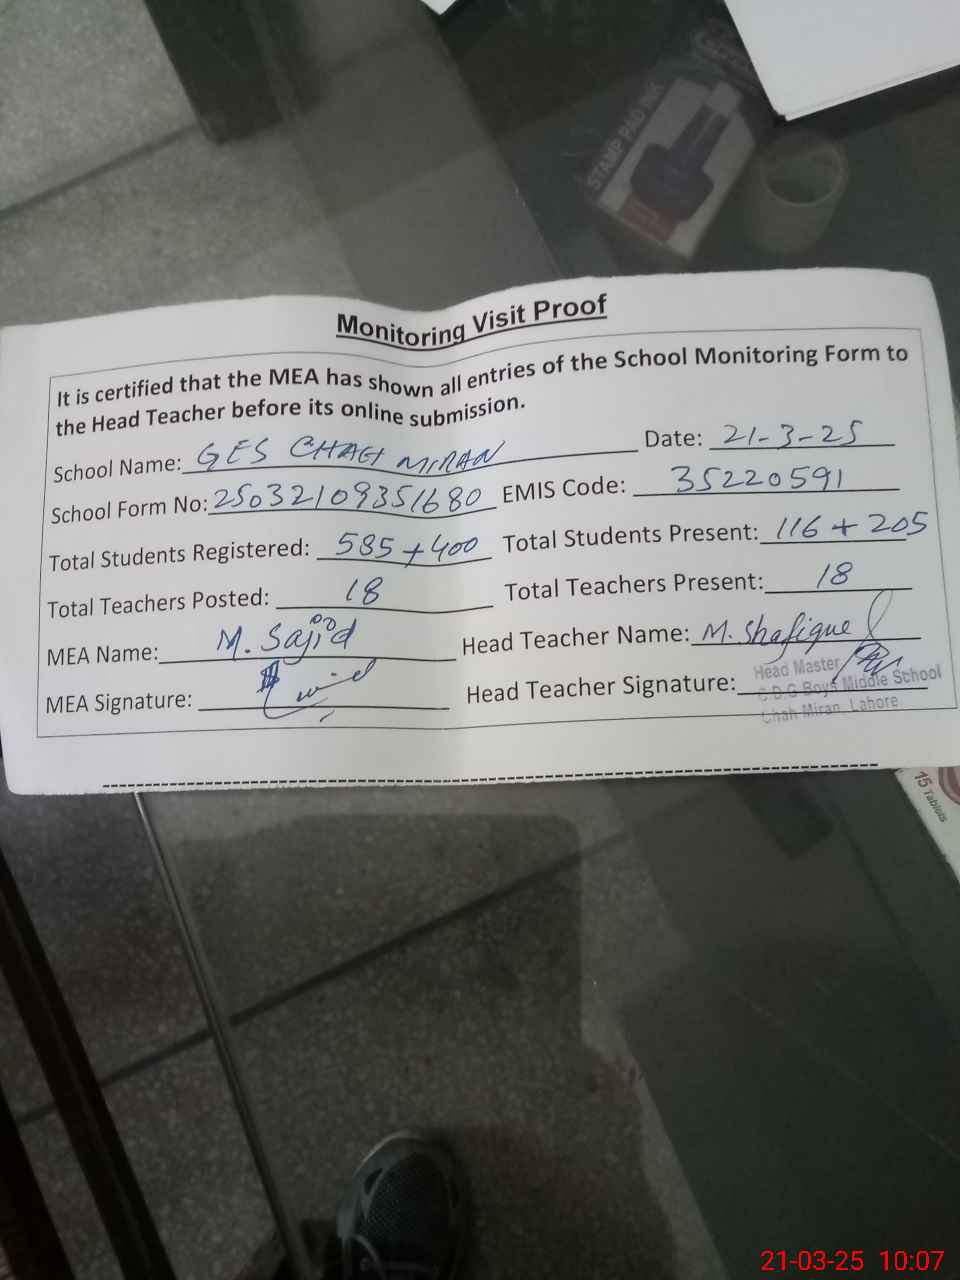 STAMP PAD INK
Monitoring Visit Proof
It is certified that the MEA has shown all entries of the School Monitoring Form to
the Head Teacher before its online submission.
School Name: GES CHAH MIRAN Date: 21-3-25
School Form No: 25032109351680 EMIS Code: 35220591
Total Students Registered: 585+400 Total Students Present: 116+205
Total Teachers Posted: 18 Total Teachers Present: 18
MEA Name: M. Sajid Head Teacher Name: M. Shafique
MEA Signature: Head Teacher Signature:
Head Master
C D G Boys Middle School
Chah Miran, Lahore
15 Tablets
21-03-25 10:07